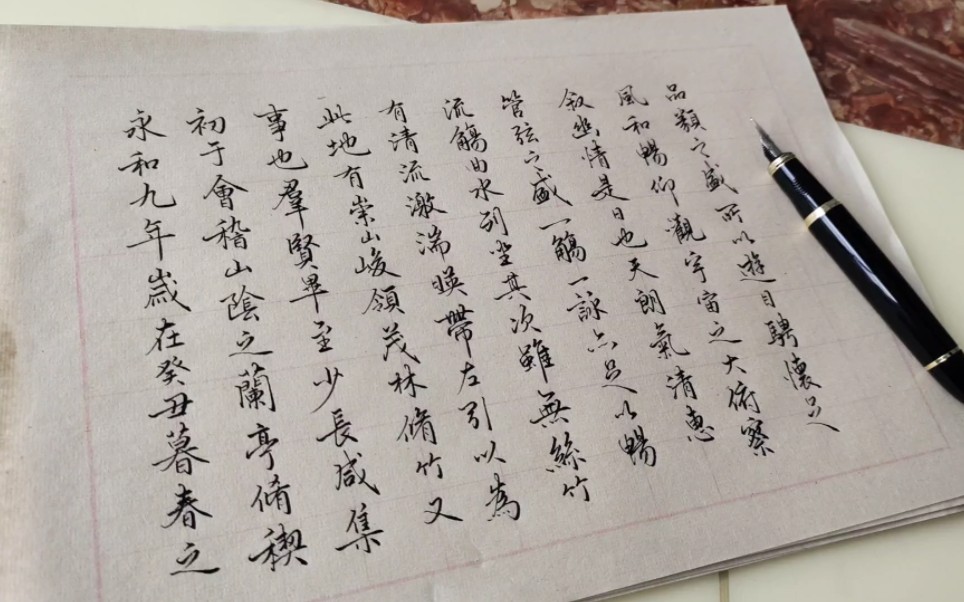 永和九年歲在癸丑暮春之
初于會稽山陰之蘭亭脩稧
事也羣賢畢至少長咸集
此地有崇山峻領茂林脩竹又
有清流激湍暎帶左引以為
流觴曲水列坐其次雖無絲竹
管弦之盛一觴一詠亦足以暢
敘幽情是日也天朗氣清惠
風和暢仰觀宇宙之大俯察
品類之盛所以遊目騁懷足